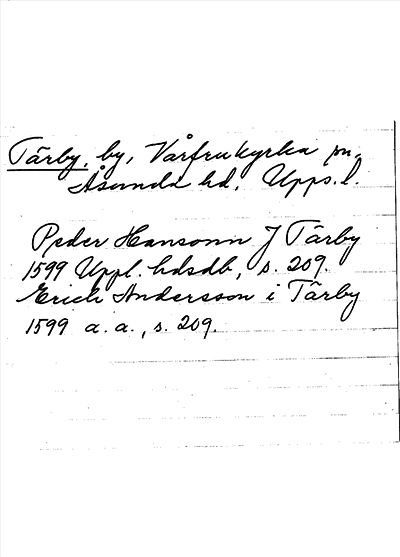 Tärby, by, Vårfrukyrka sn,
Åsunda hd, Upps. l.
Peder Hansonn J Tärby
1599 Uppl. hdsdb, s. 209.
Erich Andersson i Tärby
1599 a. a., s. 209.